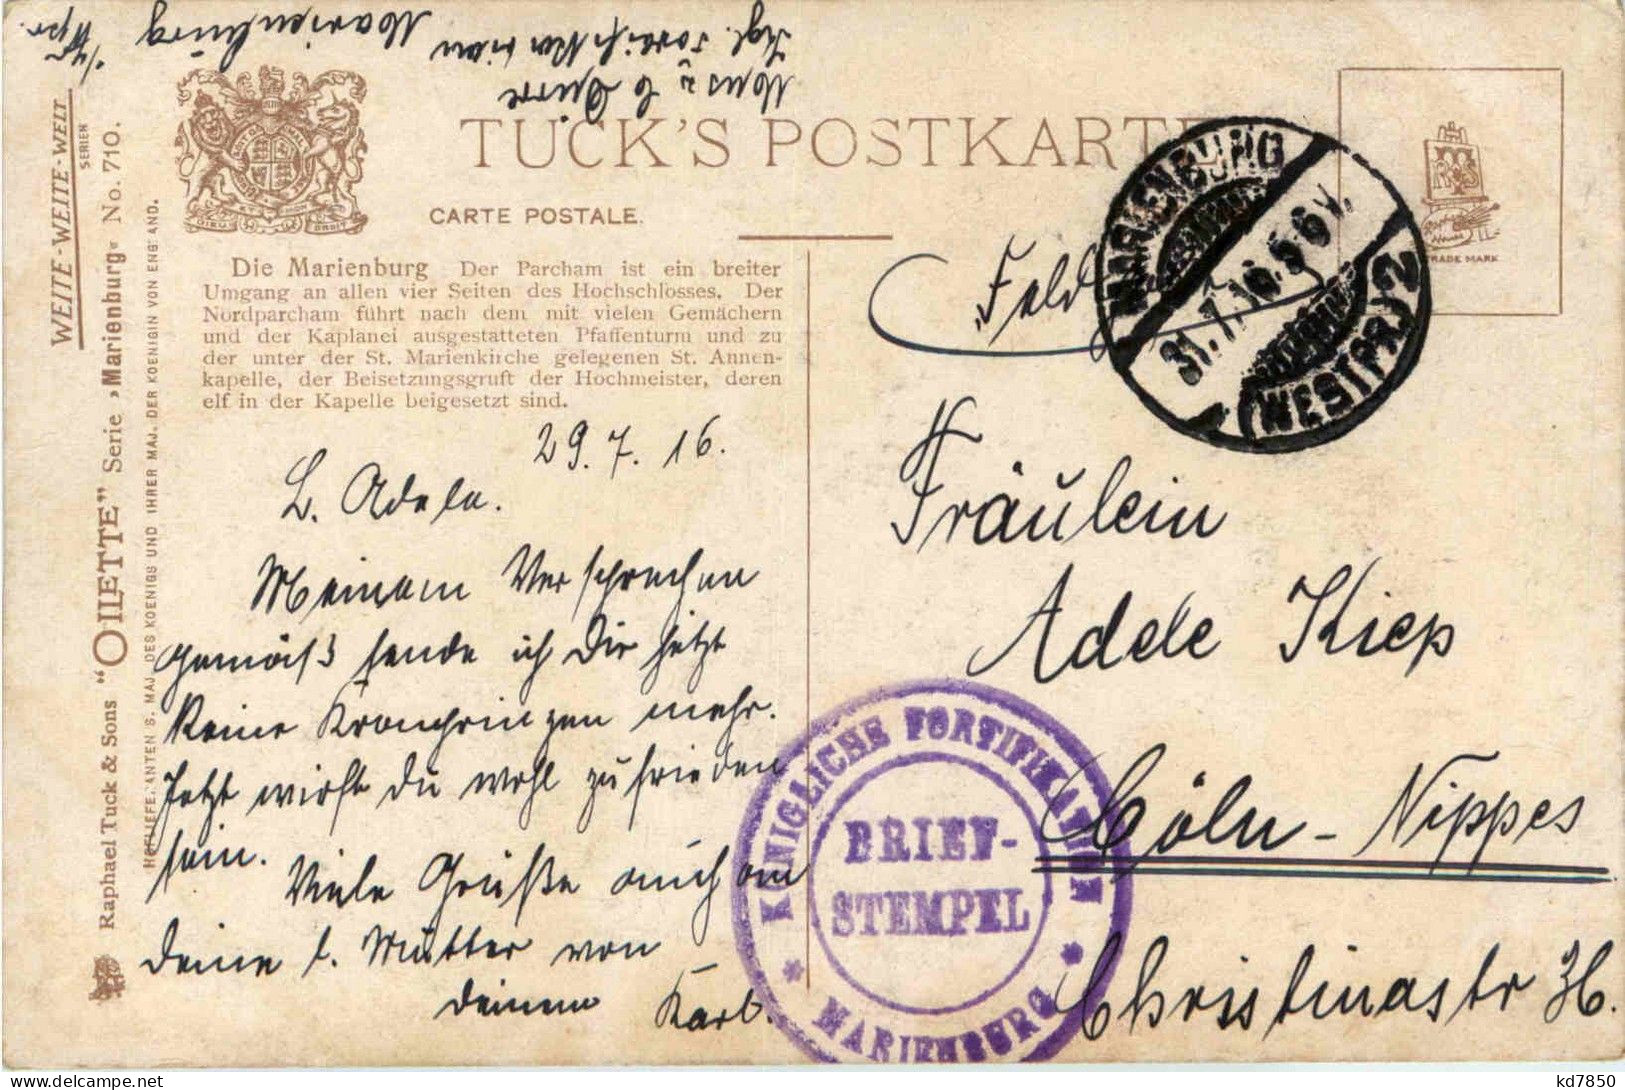 Marienburg
WEITE-WEITE-WELT
SERIEN
Raphael Tuck & Sons "OILETTE" Serie »Marienburg« No. 710.
HOFLIEFERANTEN S. MAJ. DES KOENIGS UND IHRER MAJ. DER KOENIGIN VON ENGLAND.
TUCK'S POSTKARTE
CARTE POSTALE.
Die Marienburg Der Parcham ist ein breiter
Umgang an allen vier Seiten des Hochschlosses. Der
Nordparcham führt nach dem mit vielen Gemächern
und der Kaplanei ausgestatteten Pfaffenturm und zu
der unter der St. Marienkirche gelegenen St. Annen-
kapelle, der Beisetzungsgruft der Hochmeister, deren
elf in der Kapelle beigesetzt sind.
29. 7. 16.
L. Adele.
Meinem Versprechen
gemäß sende ich Dir jetzt
keine Kronprinzen mehr.
Jetzt wirst Du wohl zufrieden
sein.
Viele Grüße auch an
Deine l. Mutter von
Deinem Karl.
MARIENBURG
31.7.16.5-6V.
(WESTPR.) 2
R S
TRADE MARK
Fräulein
Adele Kiep
Cöln - Nippes
Christinastr 36.
KÖNIGLICHE FORTIFIKATION
BRIEF-
STEMPEL
* MARIENBURG *
kd7850